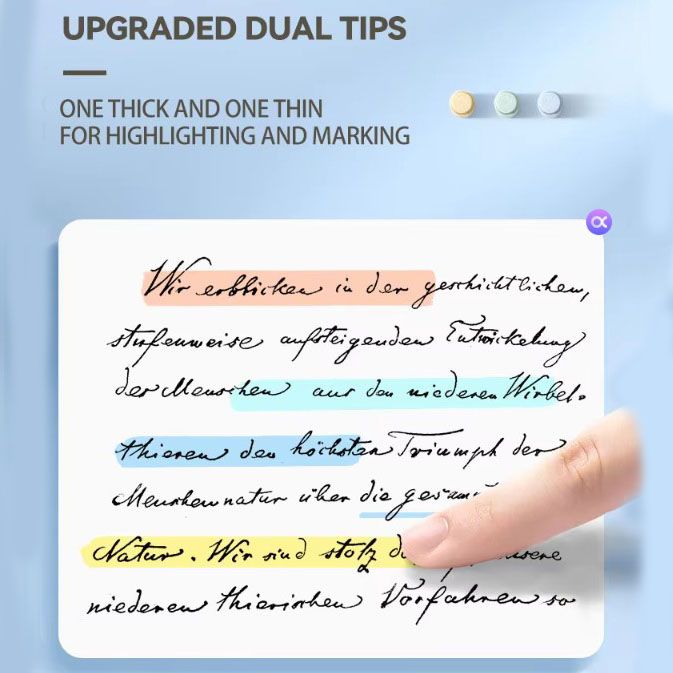 UPGRADED DUAL TIPS
ONE THICK AND ONE THIN
FOR HIGHLIGHTING AND MARKING
Wir erblicken in der geschichtlichen,
stufenweise aufsteigenden Entwickelung
der Menschen aus den niederen Wirbel-
thieren den höchsten Triumph der
Menschennatur über die gesam
Natur. Wir sind stolz
niederen thierischen Vorfahren so